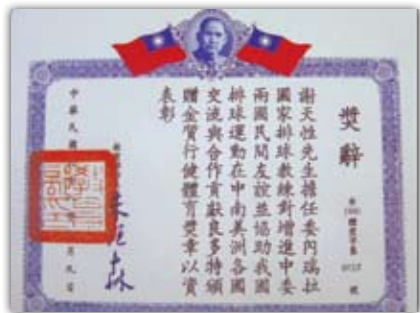 獎辭
謝天性先生擔任委內瑞拉
國家排球教練對增進中委
兩國民間友誼並協助我國
排球運動在中南美洲各國
交流與合作貢獻良多特頒
贈金質行健體育獎章以資
表彰
朱匯森
中華民國